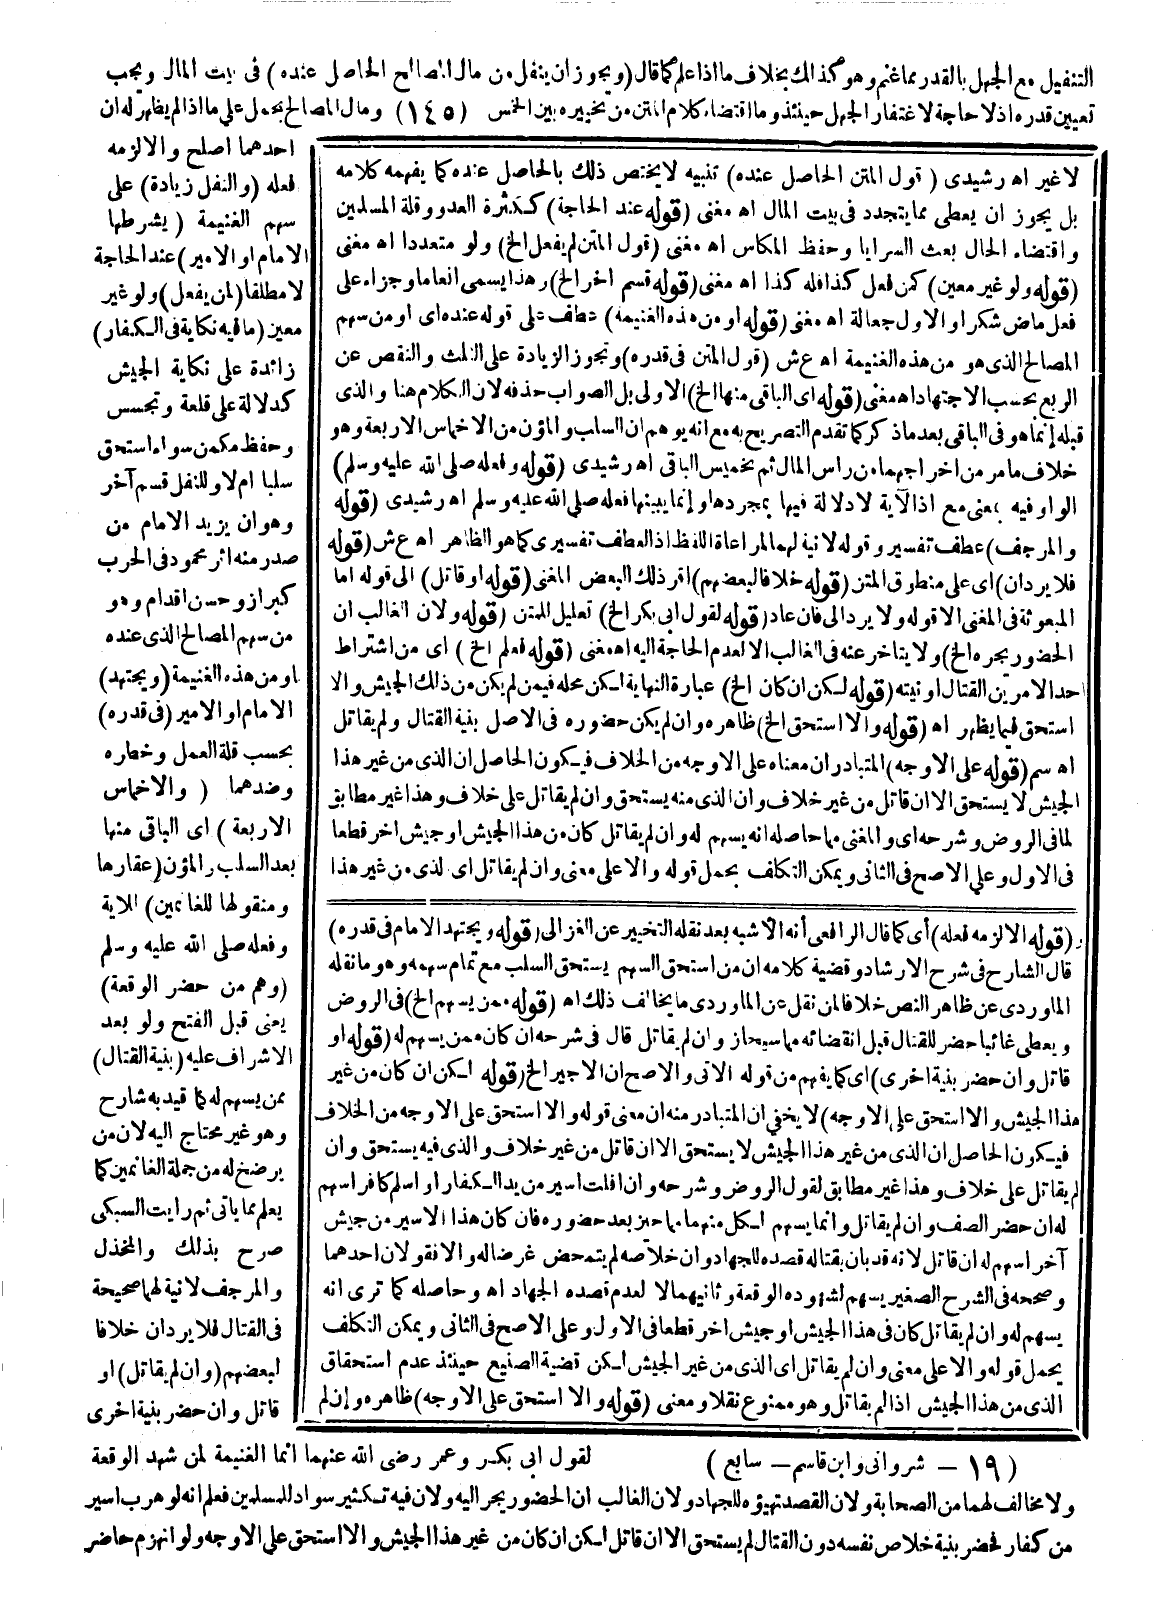 التنفيل مع الجهل بالقدر مما غنم وهو كذلك بخلاف ما اذا علم كما قال (ويجوز ان ينفل من مال المصالح الحاصل عنده) فى بيت المال ويجب
تعيين قدره اذ لا حاجة لاغتفار الجهل حينئذ وما اقتضاه كلام المتن من تخييره بين الخمس (١٤٥) ومال المصالح يحمل على ما اذا لم يظهر له ان
احدهما اصلح والا لزمه
فعله (والنفل زيادة) على
سهم الغنيمة (يشرطها
الامام او الامير) عند الحاجة
لا مطلقا (لمن يفعل) ولو غير
معين (ما فيه نكاية فى الكفار)
زائدة على نكاية الجيش
كدلالة على قلعة وتجسس
وحفظ مكمن سواء استحق
سلبا ام لا وللنفل قسم آخر
وهو ان يزيد الامام من
صدر منه اثر محمود فى الحرب
كبراز وحسن اقدام وهو
من سهم المصالح الذى عنده
او من هذه الغنيمة (ويجتهد)
الامام او الامير (فى قدره)
بحسب قلة العمل وخطره
وضدهما (والاخماس
الاربعة) اى الباقى منها
بعد السلب والمؤن (عقارها
ومنقولها للغانمين) للاية
وفعله صلى الله عليه وسلم
(وهم من حضر الوقعة)
يعنى قبل الفتح ولو بعد
الاشراف عليه (بنية القتال)
ممن يسهم له كما قيد به شارح
وهو غير محتاج اليه لان من
يرضخ له من جملة الغانمين كما
يعلم مما ياتى ثم رايت السبكى
صرح بذلك والمخذل
والمرجف لا نية لهما صحيحة
فى القتال فلا يردان خلافا
لبعضهم (وان لم يقاتل) او
قاتل وان حضر بنية اخرى
لا غير اه رشيدى (قول المتن الحاصل عنده) تنبيه لا يختص ذلك بالحاصل عنده كما يفهمه كلامه
بل يجوز ان يعطى مما يتجدد فى بيت المال اه مغنى (قوله عند الحاجة) ككثرة العدو وقلة المسلمين
واقتضاء الحال بعث السرايا وحفظ المكامن اه مغنى (قول المتن لم يفعل الخ) ولو متعددا اه مغنى
(قوله ولو غير معين) كمن فعل كذا فله كذا اه مغنى (قوله قسم اخر الخ) وهذا يسمى انعاما وجزاء على
فعل ماض شكرا والاول جعالة اه مغنى (قوله او من هذه الغنيمة) عطف على قوله عنده اى او من سهم
المصالح الذى هو من هذه الغنيمة اه ع ش (قول المتن فى قدره) وتجوز الزيادة على الثلث والنقص عن
الربع بحسب الاجتهاد اه مغنى (قوله اى الباقى منها الخ) الاولى بل الصواب حذفه لان الكلام هنا والذى
قبله إنما هو فى الباقى بعد ما ذكر كما تقدم التصريح به مع انه يوهم ان السلب والمؤن من الاخماس الاربعة وهو
خلاف ما مر من اخراجهما من راس المال ثم بخميس الباقى اه رشيدى (قوله وفعله صلى الله عليه وسلم)
الواو فيه بمعنى مع اذ الآية لا دلالة فيها بمجردها وإنما يبينها فعله صلى الله عليه وسلم اه رشيدى (قوله
والمرجف) عطف تفسير وقوله لا نية لهما لمراعاة اللفظ اذ العطف تفسيرى كما هو الظاهر اه ع ش (قوله
فلا يردان) اى على منطوق المتن (قوله خلافا لبعضهم) اقر ذلك البعض المغنى (قوله او قاتل) الى قوله اما
المبعوثة فى المغنى الا قوله ولا يرد الى فان عاد (قوله لقول ابى بكر الخ) تعليل للمتن (قوله ولان الغالب ان
الحضور يجره الخ) ولا يتاخر عنه فى الغالب الا لعدم الحاجة اليه اه مغنى (قوله فعلم الخ) اى من اشتراط
احد الامرين القتال او نيته (قوله لكن ان كان الخ) عبارة النهاية لكن محله فيمن لم يكن من ذلك الجيش والا
استحق فيما يظهر اه (قوله والا استحق الخ) ظاهره وان لم يكن حضوره فى الاصل بنية القتال ولم يقاتل
اه سم (قوله على الاوجه) المتبادر ان معناه على الاوجه من الخلاف فيكون الحاصل ان الذى من غير هذا
الجيش لا يستحق الا ان قاتل من غير خلاف وان الذى منه يستحق وان لم يقاتل على خلاف وهذا غير مطابق
لما فى الروض وشرحه اى والمغنى مما حاصله انه يسهم له وان لم يقاتل كان من هذا الجيش او جيش اخر قطعا
فى الاول وعلى الاصح فى الثانى ويمكن التكلف بحمل قوله والا على معنى وان لم يقاتل اى لذى من غير هذا
(قوله الا لزمه فعله) أى كما قال الرافعى أنه الاشبه بعد نقله التخيير عن الغزالى (قوله ويجتهد الامام فى قدره)
قال الشارح فى شرح الارشاد وقضية كلامه ان من استحق السهم يستحق السلب مع تمام سهمه وهو ما نقله
الماوردى عن ظاهر النص خلافا لمن نقل عن الماوردى ما يخالف ذلك اه (قوله ممن يسهم الخ) فى الروض
ويعطى غائبا حضر للقتال قبل انقضائه مما سيحاز وان لم يقاتل قال فى شرحه ان كان ممن يسهم له (قوله او
قاتل وان حضر بنية اخرى) اى كما يفهم من قوله الاتى والاصح ان الاجير الخ (قوله لكن ان كان من غير
هذا الجيش والا استحق على الاوجه) لا يخفى ان المتبادر منه ان معنى قوله والا استحق على الاوجه من الخلاف
فيكون الحاصل ان الذى من غير هذا الجيش لا يستحق الا ان قاتل من غير خلاف والذى فيه يستحق وان
لم يقاتل على خلاف وهذا غير مطابق لقول الروض وشرحه وان افلت اسير من يد الكفار او اسلم كافر اسهم
له ان حضر الصف وان لم يقاتل وانما يسهم لكل منهما مما حيز بعد حضوره فان كان هذا الاسير من جيش
آخر اسهم له ان قاتل لانه قد بان بقتاله قصده للجهاد وان خلاصه لم يتمحض غرضا له والا فقولان احدهما
وصححه فى الشرح الصغير يسهم لشهوده الوقعة وثانيهما لا لعدم قصده الجهاد اه وحاصله كما ترى انه
يسهم له وان لم يقاتل كان فى هذا الجيش او جيش اخر قطعا فى الاول وعلى الاصح فى الثانى ويمكن التكلف
بحمل قوله والا على معنى وان لم يقاتل اى الذى من غير الجيش لكن قضية الصنيع حينئذ عدم استحقاق
الذى من هذا الجيش اذا لم يقاتل وهو ممنوع نقلا ومعنى (قوله والا استحق على الاوجه) ظاهره وإن لم
(١٩ – شروانى وابن قاسم – سابع)
لقول ابى بكر وعمر رضى الله عنهما انما الغنيمة لمن شهد الوقعة
ولا مخالف لهما من الصحابة ولان القصد تهيؤه للجهاد ولان الغالب ان الحضور يجر اليه ولان فيه تكثير سواد للمسلمين فعلم انه لو هرب اسير
من كفار فحضر بنية خلاص نفسه دون القتال لم يستحق الا ان قاتل لكن ان كان من غير هذا الجيش والا استحق على الاوجه ولو انهزم حاضر